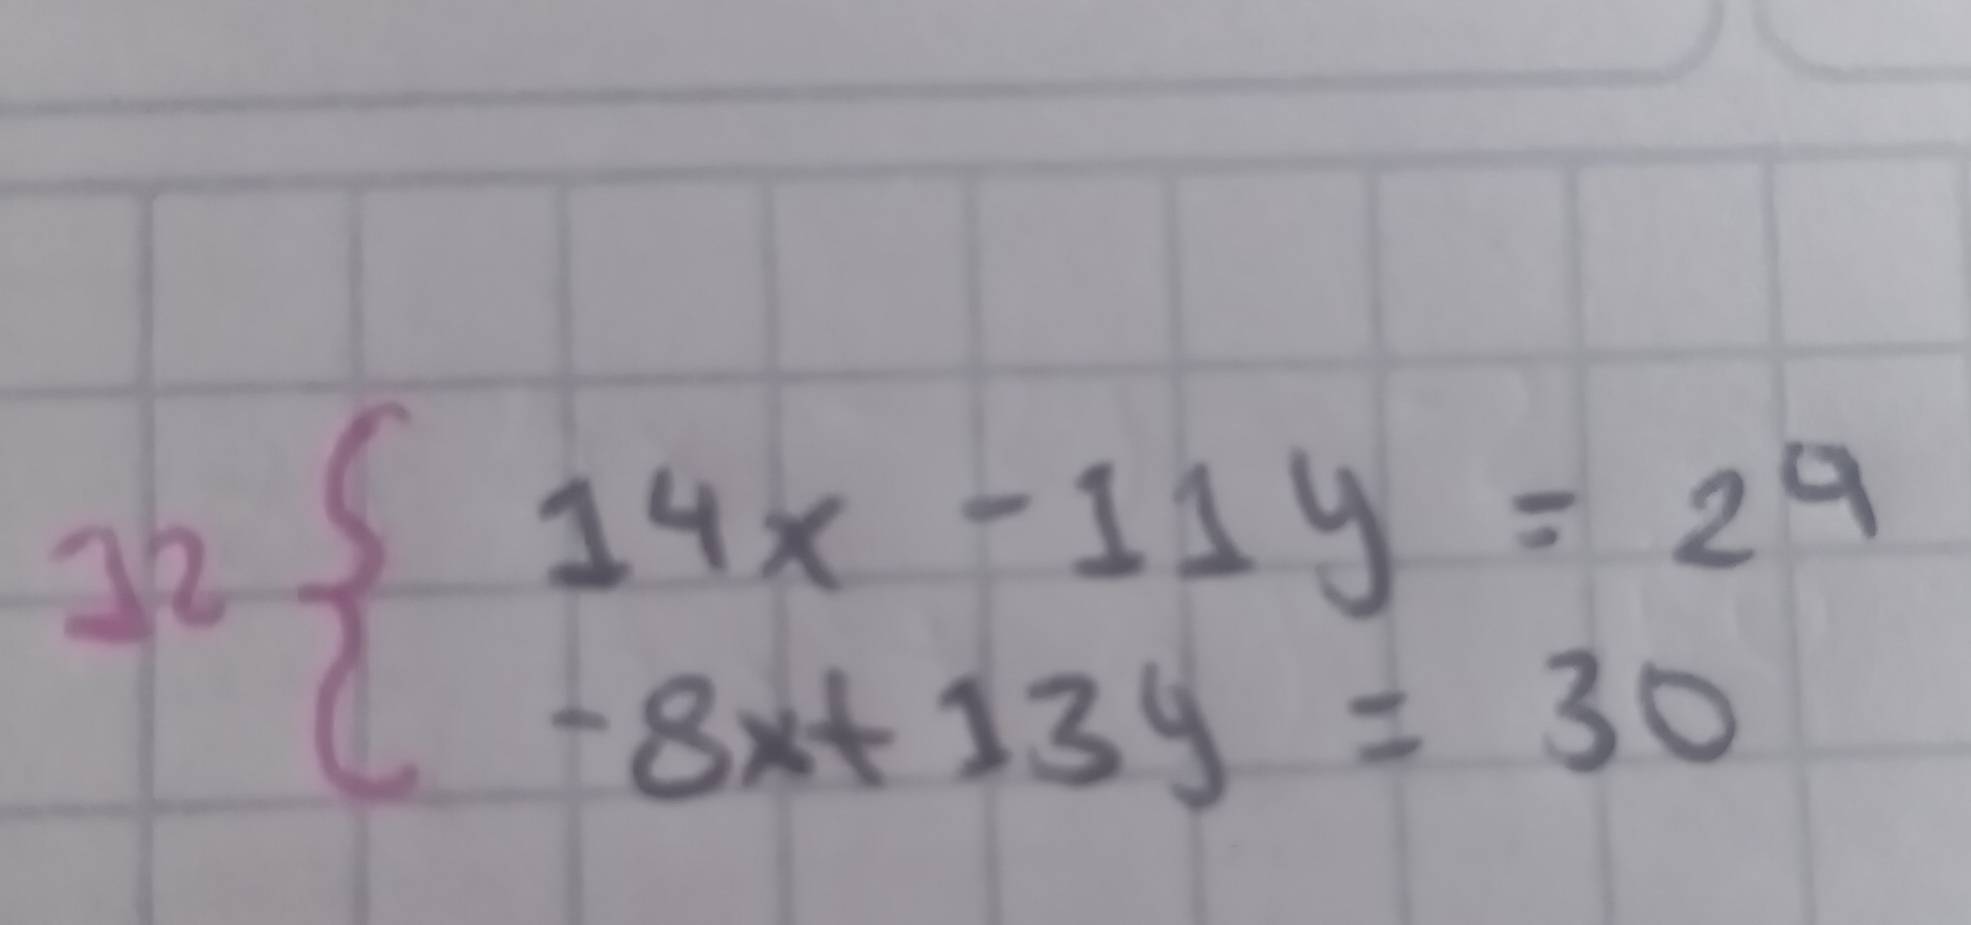 12 { 14x - 11y = 29
-8x + 13y = 30